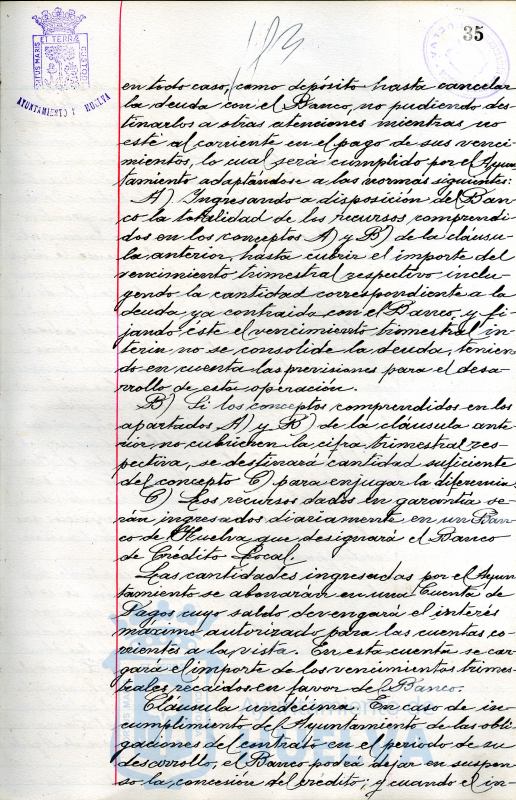 35
PORTUS MARIS ET TERRAE CUSTODIA
AYUNTAMIENTO HUELVA
en todo caso, como depósito hasta cancelar
la deuda con el Banco, no pudiendo des-
tinarlos a otras atenciones mientras no
esté al corriente en el pago de sus venci-
mientos, lo cual será cumplido por el Ayun-
tamiento adaptándose a las normas siguientes:
A) Ingresando a disposición del Ban-
co la totalidad de los recursos comprendi-
dos en los conceptos A) y B) de la cláusu-
la anterior, hasta cubrir el importe del
vencimiento trimestral respectivo inclu-
yendo la cantidad correspondiente a la
deuda ya contraida con el Banco, y fi-
jando este el vencimiento trimestral in-
terin no se consolide la deuda, tenien-
do en cuenta las previsiones para el desa-
rrollo de esta operación.
B) Si los conceptos comprendidos en los
apartados A) y B) de la cláusula ante-
rior, no cubriesen la cifra trimestral res-
pectiva, se destinará cantidad suficiente
del concepto C) para enjugar la diferencia.
C) Los recursos dados en garantía se-
rán ingresados diariamente en un Ban-
co de Huelva que designará el Banco
de Crédito Local.
Las cantidades ingresadas por el Ayun-
tamiento se abonarán en una Cuenta de
Pagos cuyo saldo devengará el interés
máximo autorizado para las cuentas co-
rrientes a la vista. En esta cuenta se car-
gará el importe de los vencimientos trimes-
trales recaidos en favor del Banco.
Cláusula undécima. En caso de in-
cumplimiento del Ayuntamiento de las obli-
gaciones del contrato en el periodo de su
desarrollo, el Banco podrá dejar en suspen-
so la concesión del crédito; y cuando el in-
HUELVA